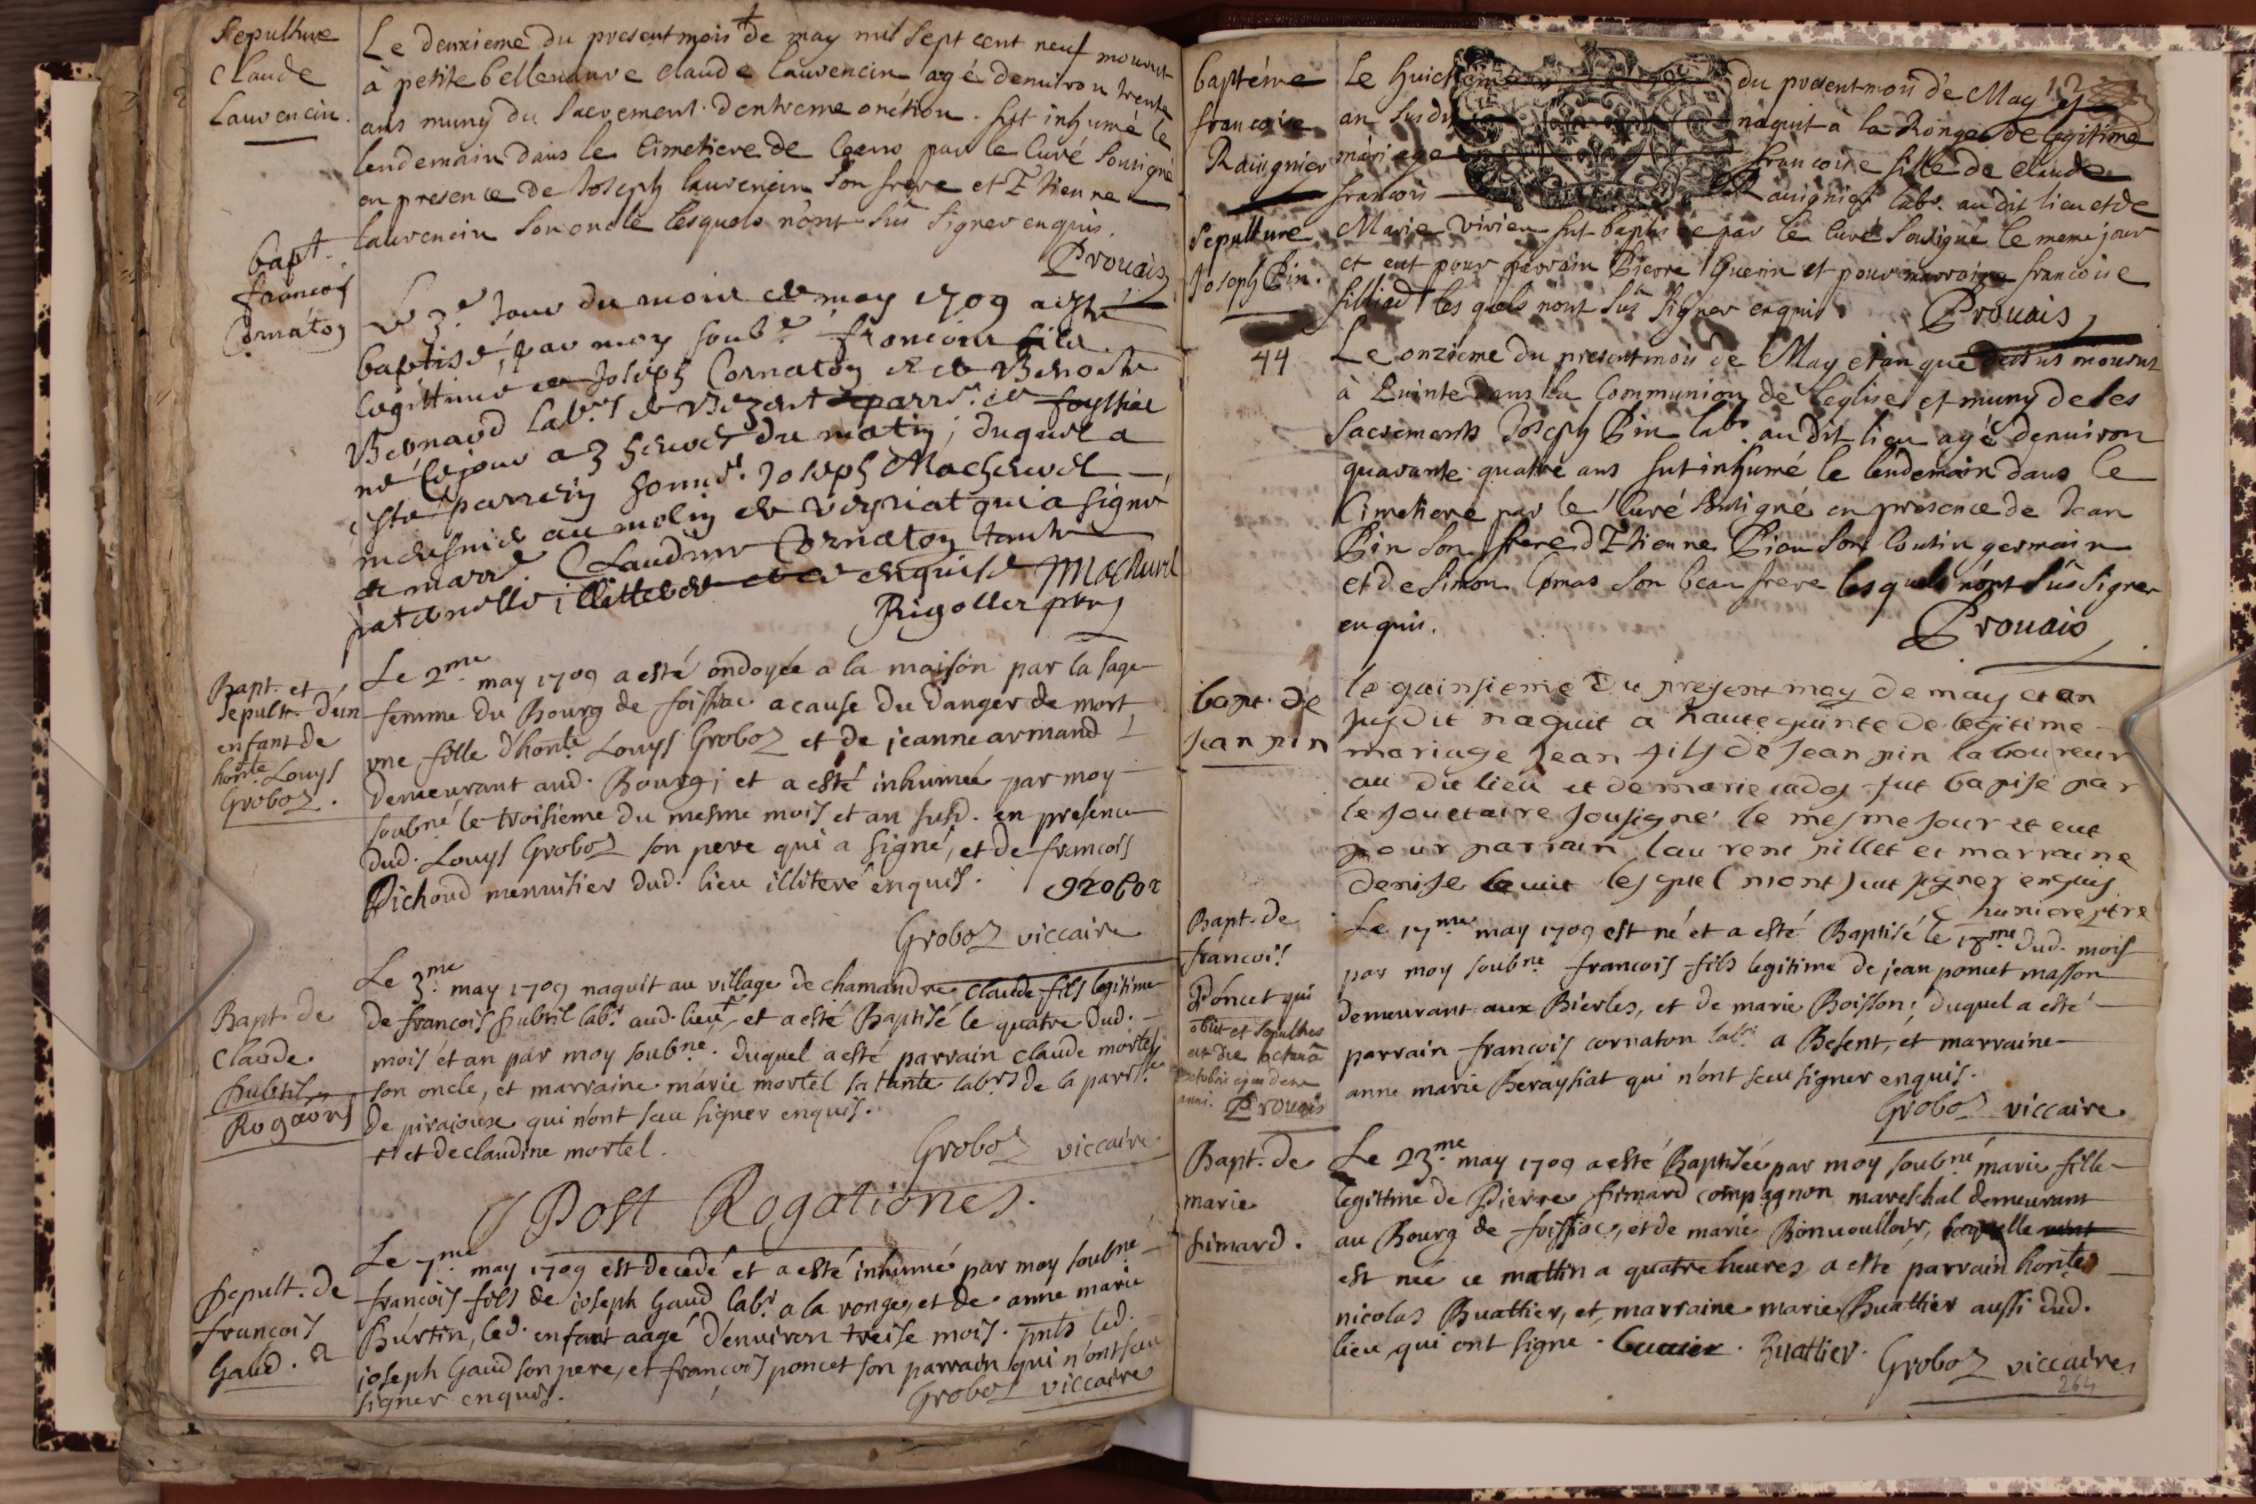 Sepulture
Claude
Laurencin.
Le deuxieme du present mois de may mil sept cent neuf mourut
à petite bellevauvre claude laurencin agé denuiron trente
ans muny du sacrement dentreme onction. fut inhumé le
lendemain dans le Cimetiere de ceans par le Curé sousigné
en presence de Joseph laurencin son frere et Etienne
laurencin son oncle lesquels n'ont sus signer enquis.
Prouais
bapt.
francois
Cornatoy
Le 3e. Jour du mois de may 1709 a esté
baptisé par moy soub.é francois fils
legittime de Joseph Cornatoy et de Benoite
Bernard lab.rs de Bezent parr.e de foyssiac
né ce jour a 3 heures du matin, duquel a
esté parrein honn.e Joseph Macheurel
meusnier au molin de veyriat qui a signé
et marr.e Claudine Cornatoy tante
paternelle illitteree de ce enquise Machurel
Rigollier
Bapt. et
sepult. d'un
enfant de
honte. Louys
Groboz.
Le 2.me may 1709 a esté ondoyée a la maison par la sage
femme du Bourg de foissiac a cause du danger de mort
vne fille d'honte. Louys Groboz et de jeanne armand
demeurant aud. Bourg; et a esté inhumée par moy
soubné le troisieme du mesme mois et an susd. en presence
dud. Louys Groboz son pere qui a signé, et de francois
Pichoud menuisier dud. lieu illiteré enquis. groboz
Groboz viccaire
Bapt. de
Claude
hubtil
Rogaons
Le 3.me may 1709 naquit au village de chamandre claude fils legitime
de francois hubtil lab.r aud. lieu + et a esté Baptisé le quatre dud.
mois et an par moy soubne. duquel a esté parrain claude mortel
son oncle, et marraine marie mortel sa tante lab.rs de la parr.sse
de pirajoux qui n'ont sceu signer enquis.
+ et de claudine mortel.
Groboz viccaire
Post Rogationes.
Sepult. de
francois
Gaud.
Le 7.me may 1709 est decedé et a esté inhumé par moy soubné
francois fils de joseph Gaud lab.r a la ronge, et de anne marie
Burtin, led. enfant aagé d'enuiron treise mois. pnts led.
joseph Gaud son pere, et francois poncet son parrain qui n'ont sceu
signer enquis.
Groboz viccaire
baptéme
francoise
Rauignier
Le huictieme du present mois de May et
an susdit naquit à la Ronge de legitime
mariage francoise fille de claude
francois Rauignier lab.r au dit lieu et de
Marie Vivien fut baptisée par le curé sousigné le meme jour
et eut pour parrain Pierre Guerin et pour marraine francoise
filliad lesquels nont sus signer enquis
Prouais
Sepulture
Joseph Pin.
44
Le onzieme du present mois de May et an que dessus mourut
à Quinte dans la Communion de leglise et muny de ses
sacrements Joseph Pin lab.r au dit lieu agé denuiron
quarante quatre ans fut inhumé le lendemain dans le
Cimetiere par le Curé sousigné en presence de Jean
Pin son frere d'Etienne Pin son cousin germain
et de simon Comas son beau frere lesquels n'ont sus signer
enquis.
Prouais
bapt. de
jean pin
le quinsieme du present moy de may et an
susdit naquit a haute quinte de legitime
mariage jean fils de jean pin laboureur
au dit lieu et de marie fut bapisé par
le sousigné le mesme jour et eut
pour parrain laurent pillet et marraine
denise lesquel nont sut signer enquis
Bapt. de
francois
Poncet qui
obiit et sepultus
est die octava
octobris ejusdem
anni. Prouais
Le 17.me may 1709 est né et a esté Baptisé le 18.me dud. mois
par moy soubné. francois fils legitime de jean poncet masson
demeurant aux Bierles, et de marie Boisson; duquel a esté
parrain francois cornaton lab.r a Besent, et marraine
anne marie Beraysiat qui n'ont sceu signer enquis.
Groboz viccaire
Bapt. de
marie
simard.
Le 23.me may 1709 a esté Baptisée par moy soubné marie fille
legitime de Pierre simard compagnon mareschal demeurant
au Bourg de foissiac, et de marie Bonuoulloir, laquelle
est née ce mattin a quatre heures a esté parrain honte.
nicolas Buattier, et marraine marie Buattier aussi dud.
lieu qui ont signe. Buatier. Buattier.
Groboz viccaire
264